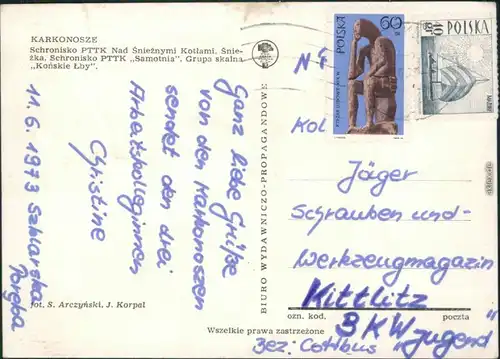 KARKONOSZE
Schronisko PTTK Nad Śnieżnymi Kotłami. Śnie-
żka. Schronisko PTTK „Samotnia". Grupa skalna
„Końskie Łby".
Ganz liebe Grüße
von den Karkonoszen
sendet den drei
Arbeitskolleginnen
Christine
11.6.1973 Szklarska
Poręba
fot. S. Arczyński, J. Korpal
BIURO WYDAWNICZO-PROPAGANDOWE
Wszelkie prawa zastrzeżone
POLSKA 60 gr
40 gr POLSKA
Kol
Jäger
Schrauben und-
Werkzeugmagazin
Kittlitz
ozn. kod. poczta
BKW „Jugend"
Bez. Cottbus